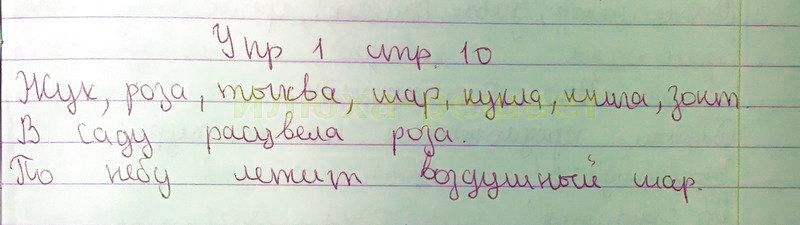 Упр 1 стр. 10
Жук, роза, тыква, шар, кукла, книга, зонт.
В саду расцвела роза.
По небу летит воздушный шар.